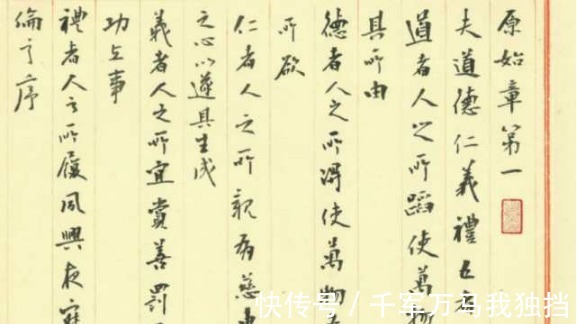 原始章第一
夫道德仁義禮五
道者人之所蹈使萬物
其所由
德者人之所得使萬物
所欲
仁者人之所親有慈惠
之心以遂其生成
義者人之所宜賞善罰
功立事
禮者人之所履夙興夜寐
倫之序
快传号／千军万马我独挡